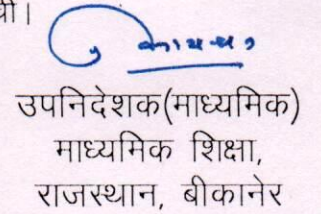 उपनिदेशक(माध्यमिक)
माध्यमिक शिक्षा,
राजस्थान, बीकानेर